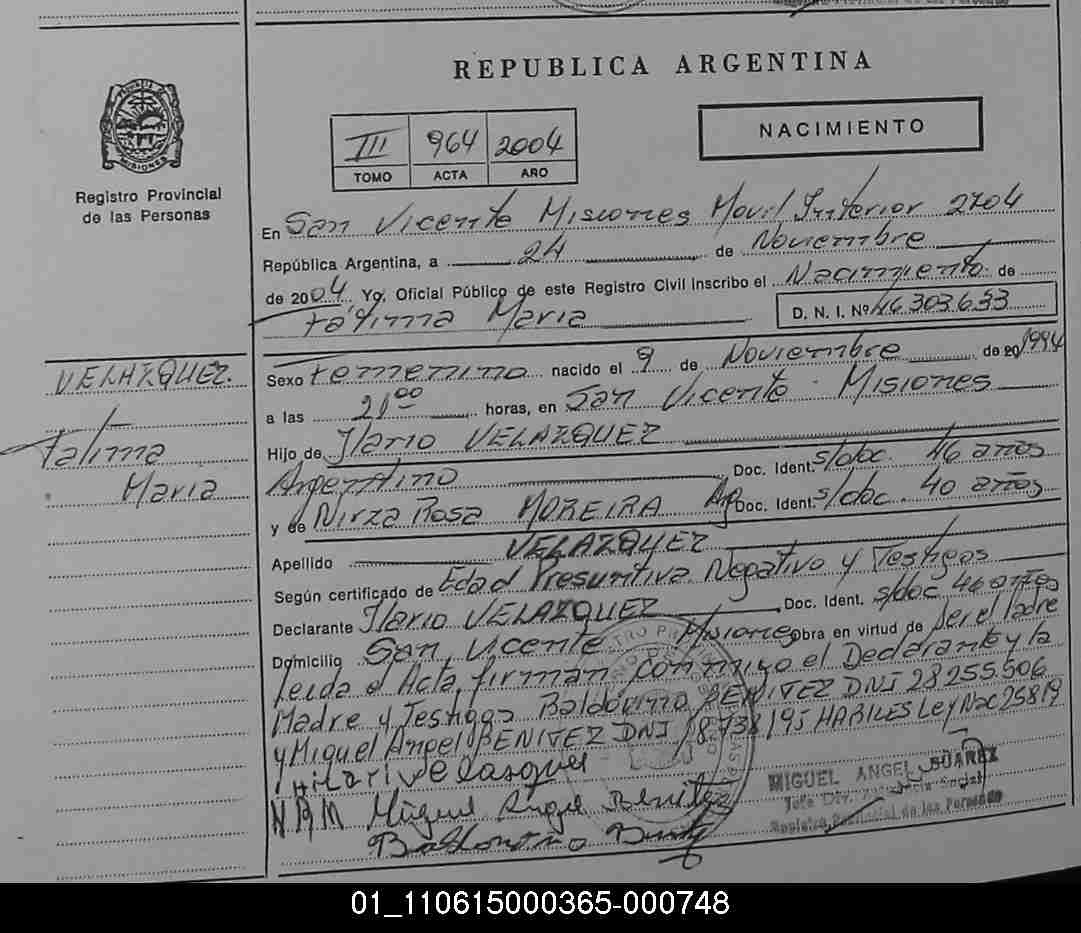 REPUBLICA ARGENTINA
MISIONES
Registro Provincial
de las Personas
III 964 2004
TOMO ACTA AÑO
NACIMIENTO
En San Vicente Misiones Movil Interior 2704
República Argentina, a 24 de Noviembre
de 2004 Yo, Oficial Público de este Registro Civil inscribo el Nacimiento de
Fátima Maria
D. N. I. Nº 46.303.633
VELAZQUEZ.
Fatima
Maria
Sexo Femenino nacido el 9 de Noviembre de 20 1994
a las 21⁰⁰ horas, en San Vicente - Misiones
Hijo de Ilario VELAZQUEZ
Argentino Doc. Ident. s/doc. 46 años
y de Nirza Rosa MOREIRA Ag Doc. Ident. s/doc. 40 años
Apellido VELAZQUEZ
Según certificado de Edad Presuntiva Negativo y Testigos
Declarante Ilario VELAZQUEZ, Doc. Ident. s/doc 46 años
Domicilio San Vicente Misiones Obra en virtud de Ser el Padre
Leida el Acta, firman conmigo el Declarante y la
Madre y Testigos Baldovino BENITEZ DNI 28255.506
y Miguel Angel BENITEZ DNI 18738195 HABILES Ley Nac 25819
Hilari velasquez
N R M Miguel Angel Benitez
MIGUEL ANGEL SUAREZ
Registro Provincial de las Personas
01_110615000365-000748